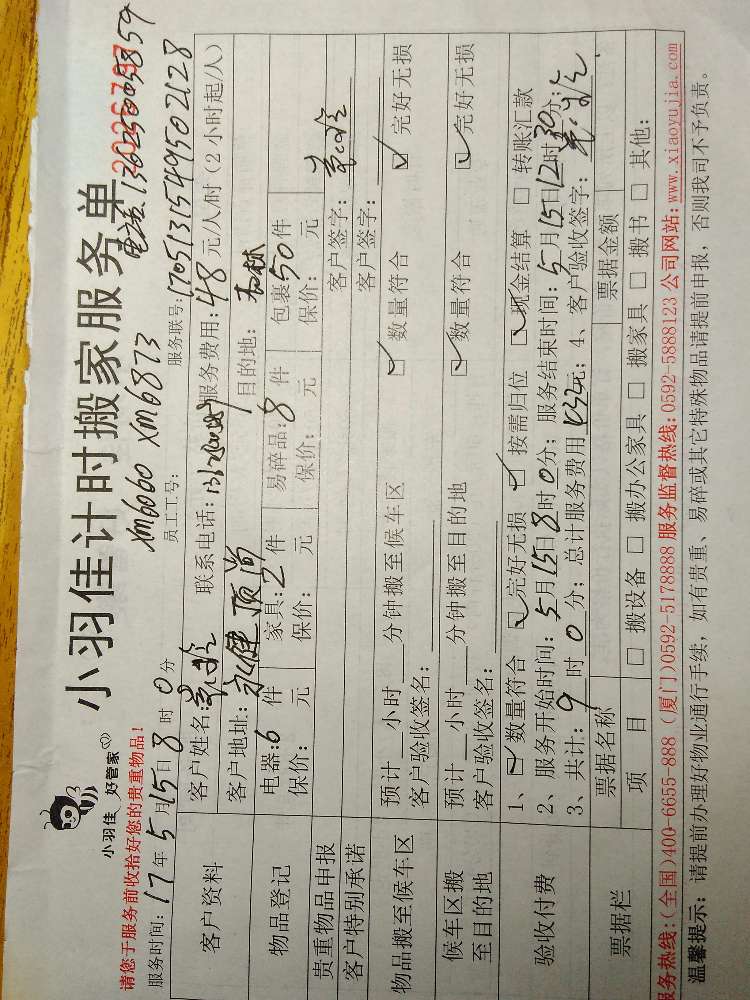 小羽佳计时搬家服务单
小羽佳 好管家
XM6060 XM6873
电话
2026797
请您于服务前收拾好您的贵重物品!
服务时间: 17年5月15日8时0分 员工工号: 服务联号: 1705131549502128
客户资料
客户姓名: 联系电话: 服务费用: 48元/人/时(2小时起/人)
客户地址: 永健顶尚 目的地:
物品登记
电器: 6件 家具: 2件 易碎品: 8件 包裹 50件
保价: 元 保价: 元 保价: 元 保价: 元
贵重物品申报 客户签字:
客户特别承诺 客户签字:
物品搬至候车区
预计 小时 分钟搬至候车区 ☑ 数量符合 ☑ 完好无损
客户验收签名:
候车区搬至目的地
预计 小时 分钟搬至目的地 ☑ 数量符合 ☑ 完好无损
客户验收签名:
验收付费
1、☑ 数量符合 ☑ 完好无损 ☑ 按需归位 ☑ 现金结算 □ 转账汇款
2、服务开始时间: 5月15日8时0分; 服务结束时间: 5月15日12时30分;
3、共计: 9时0分; 总计服务费用 432元; 4、客户验收签字:
票据栏
票据名称 票据金额
项目 □ 搬设备 □ 搬办公家具 □ 搬家具 □ 搬书 □ 其他:
服务热线:(全国)400-6655-888 (厦门)0592-5178888 服务监督热线:0592-5888123 公司网站:www.xiaoyujia.com
温馨提示: 请提前办理好物业通行手续, 如有贵重、易碎或其它特殊物品请提前申报, 否则我司不予负责。